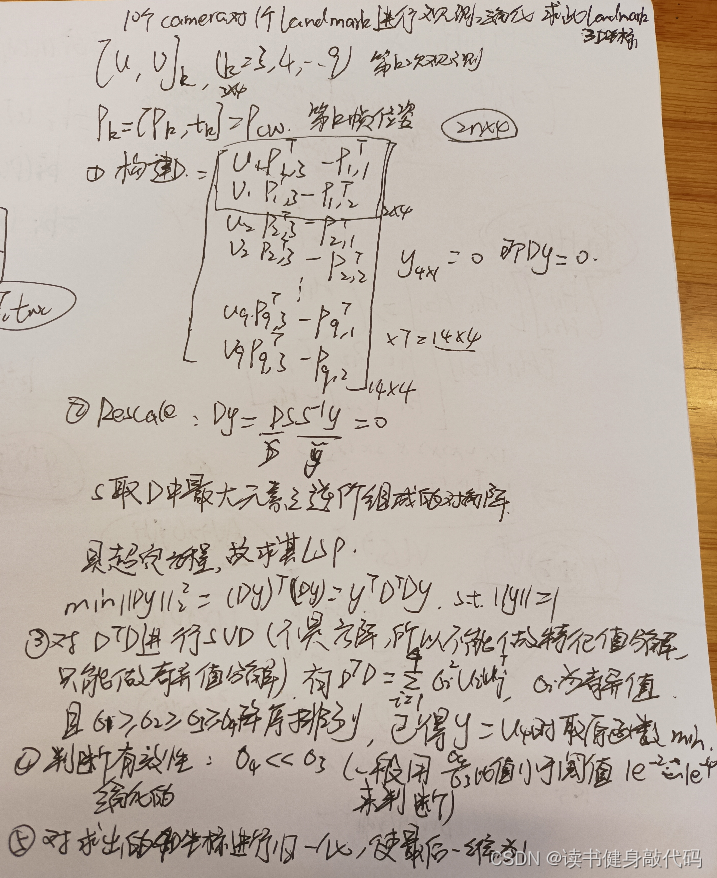 10个camera对1个landmark进行观测,三角化 求此landmark
3D坐标
[u, v]k, (k=3,4,...9) 第k次观测
2x4
Pk=[Rk,tk]=Pcw. 第k帧位姿 2n×4
① 构建D. =
u1P1,3ᵀ - P1,1ᵀ
v1 P1,3ᵀ - P1,2ᵀ
2x4
u2 P2,3ᵀ - P2,1ᵀ
v2 P2,3ᵀ - P2,2ᵀ
y4x1 = 0 即Dy=0.
⋮
u9.P9,3ᵀ - P9,1ᵀ
×7=14×4
v9P9,3ᵀ - P9,2ᵀ
14×4
twc
② Rescale: Dy = DSS⁻¹y = 0
D̃ ỹ
S取D中最大元素之逆所组成的对角阵.
是超定方程,故求其LSP.
min||Dy||₂² = (Dy)ᵀ(Dy) = yᵀDᵀDy. s.t. ||y||=1
③ 对DᵀD进行SVD(不是方阵,所以不能做特征值分解,
只能做奇异值分解) 有DᵀD = Σ(i=1,4) σi²UiUjᵀ, σi为奇异值
且σ1≥σ2≥σ3≥σ4降序排列, 已得y=U4时取得函数min.
④ 判断有效性: σ4<<σ3 (一般用σ4/σ3的值小于阈值1e⁻²~1e⁻⁴
三角化的 来判断)
⑤ 对求出的坐标进行归一化,使最后一维为1
CSDN @读书健身敲代码